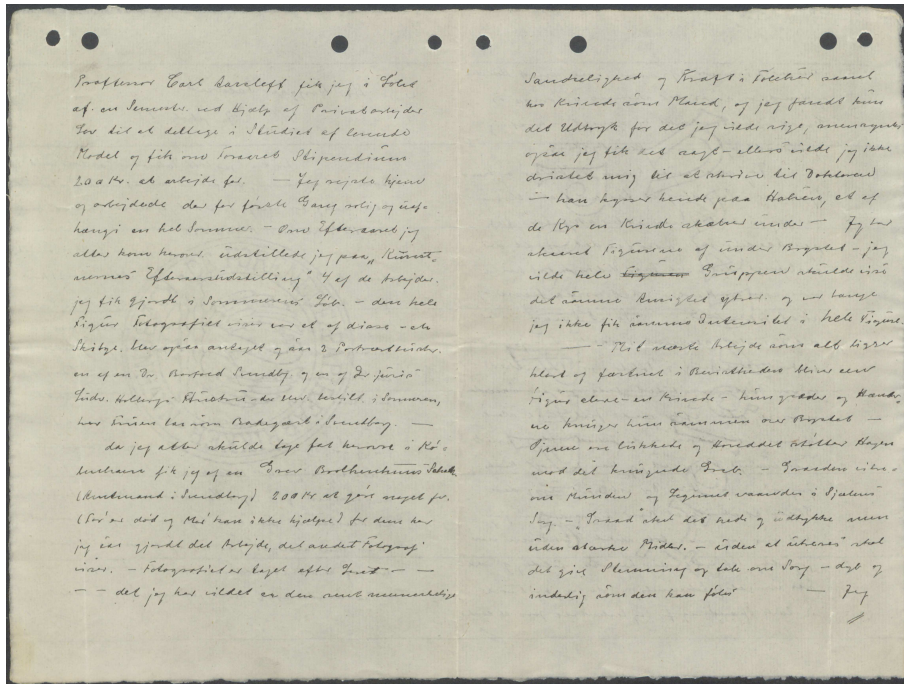 Proffessor Carl Aarsleff fik jeg i Løbet
af en Semester ved Hjælp af Privatarbejder
Lov til at deltage i Studiet af levende
Model og fik om Foraaret Stipendium
200 Kr. at arbejde for. — Jeg rejste hjem
og arbejdede der for første Gang rolig og uaf-
hængi en hel Sommer. — Om Efteraaret jeg
atter kom herover udstillede jeg paa „Kunst-
nernes Efteraarsudstilling" 4 af de Arbejder
jeg fik gjordt i Sommerens Løb. — den hele
Figur Fotografiet viser var et af disse — en
Skitse. blev ogsaa antaget ogsaa 2 Portrætbuster.
en af en Dr. Svendborg og en af Dr juris
Ludv. Holbergs Hustru — i Sommer,
som Badegæst i Svendborg. —
da jeg atter skulde tage fat herovre i Kø-
benhavn fik jeg af en Grev
( i Svendborg) 200 Kr at gøre noget for.
(Far er død og Mor kan ikke hjælpe) for dem har
jeg saa gjordt det Arbejde, det andet Fotografi
viser. — Fotografiet er taget efter — —
— — det jeg har vildet er den rent menneskelige
Sandselighed og Kraft i Følelser saavel
hos Kvinde som Mand, og jeg fandt kun
det Udtryk for det jeg vilde sige, men synes
ogsaa jeg fik det sagt — ellers vilde jeg ikke
dristet mig til at skrive til Doktoren
— han kysser hende paa Halsen, et af
de Kys en Kvinde skælver under — Jeg har
skaaret Figurene af under Brystet — jeg
vilde hele Figuren Gruppen skulde vise
det samme og var bange
jeg ikke fik samme Intensitet i hele Figuren.
— — Mit næste Arbejde som alt ligger
klart og færdigt i Bevistheden bliver een
Figur alene — en Kvinde — hun græder og Hænder-
ne knuger hun sammen over Brystet —
Øjnene ere lukkede og Hovedet støtter Hagen
mod det knugende Greb. — Graaden
om Munden og Legemet vaandes i Sjælens
Sorg — „Graad" skal det hede og udtrykke men
uden stærke Midler. — uden at skal
det give Stemning og tale om Sorg — dyb og
inderlig som den kan føles — Jeg